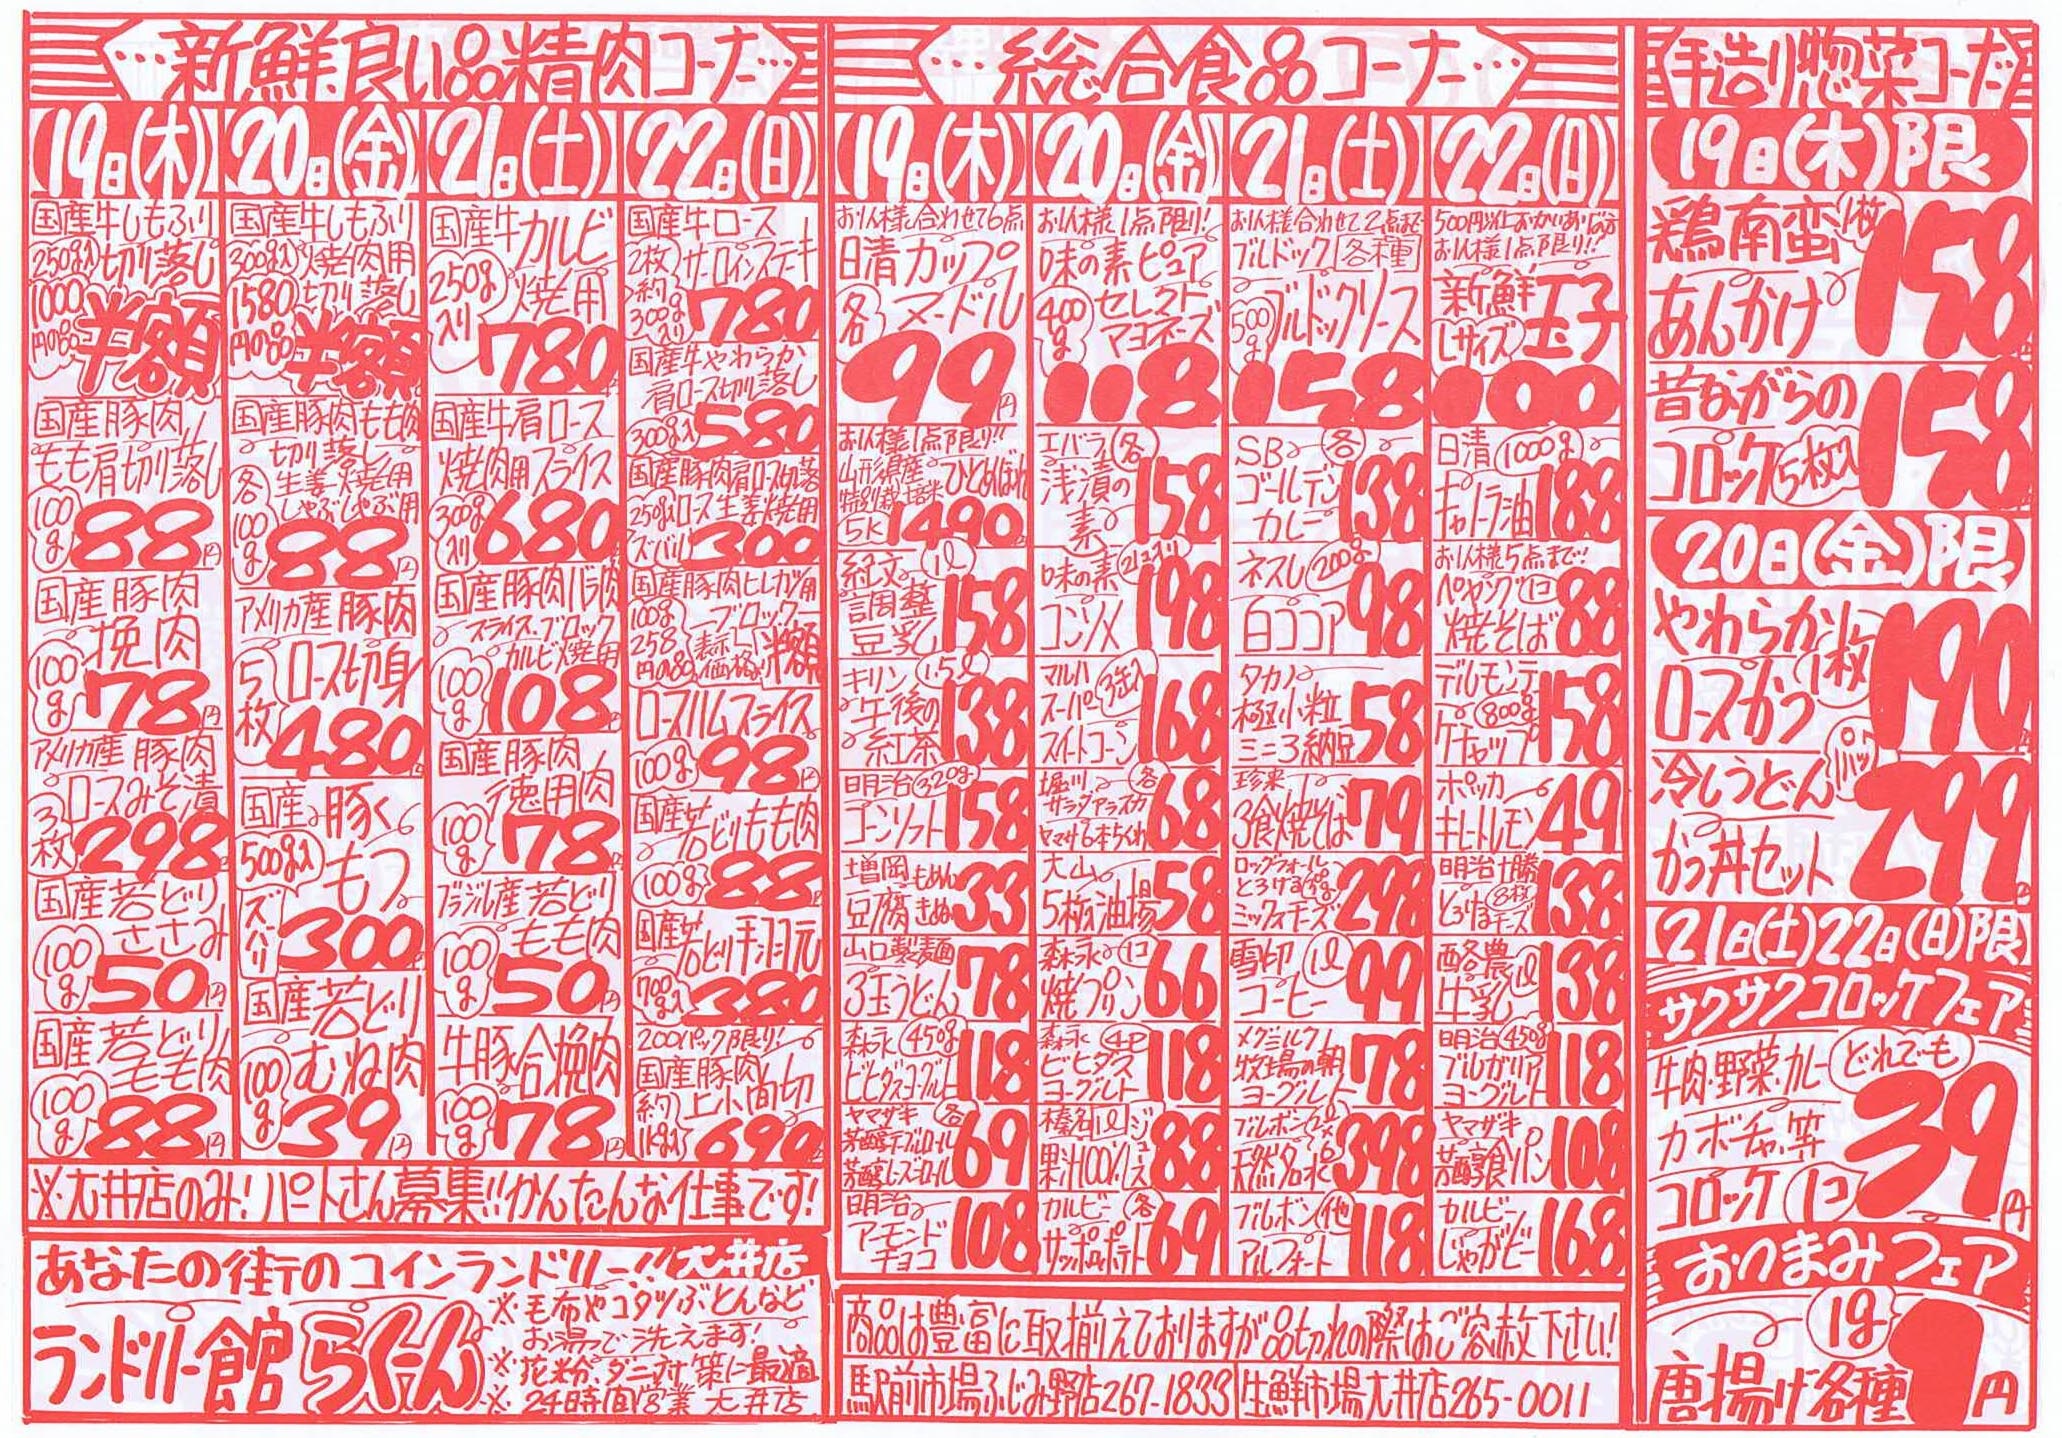 新鮮良い品精肉コーナー
19日(木)
国産牛しもふり
250g入 切り落し
1000円の品 半額
国産豚肉
もも肩切り落し
100g 88円
国産豚肉
挽肉
100g 78円
アメリカ産 豚肉
ロースみそ漬
3枚 298
国産若どり
ささみ
100g 50円
国産若どり
もも肉
100g 88円
20日(金)
国産牛しもふり
300g入 焼肉用
切り落し
1580円の品 半額
国産豚肉もも肉
切り落し
生姜焼用
しゃぶしゃぶ用
各100g 88円
アメリカ産豚肉
ロース切身
5枚 480
国産 豚く
もつ
500g入 ズバリ 300
国産若どり
むね肉
100g 39円
21日(土)
国産牛カルビ
焼用
250g入り 780
国産牛肩ロース
焼肉用スライス
300g入り 680
国産豚肉バラ肉
スライス、ブロック
カルビ焼用
100g 108
国産豚肉
徳用肉
100g 78円
ブラジル産若どり
もも肉
100g 50円
牛豚合挽肉
100g 78円
22日(日)
国産牛ロース
2枚 サーロインステーキ
約300g入り 780
国産牛やわらか
肩ロース切り落し
300g入 580
国産豚肉肩ロース切落
250g入 ロース生姜焼用
ズバリ 300
国産豚肉ヒレカツ用
ブロック
100g 258円の品 表示価格より 半額
ロースハムスライス
100g 98
国産若どりもも肉
100g 88
国産若どり手羽元
700g入 380
200パック限り!
国産豚肉
上小間切
約1kg入 690円
※大井店のみ!パートさん募集!!かんたんな仕事です!
あなたの街のコインランドリー!!大井店
ランドリー館らくーん
※毛布やコタツぶとんなど
お湯で洗えます!
※花粉、ダニ対策に最適
※24時間営業 大井店
総合食品コーナー
19日(木)
お1人様合わせて6点
日清カップ
ヌードル
各 99円
お1人様1点限り!!
山形県産
特別栽培米 ひとめぼれ
5K 1490円
紀文 1l
調整
豆乳 158
キリン 1.5l
午後の
紅茶 138
明治 320g
コーンソフト 158
増岡 もめん
豆腐 きぬ 33
山口製麺
3玉うどん 78
森永 450g
ビヒダスヨーグルト 118
ヤマザキ 各
芳醇テーブルロール
芳醇レーズンロール 69
明治
アーモンド
チョコ 108
20日(金)
お1人様1点限り!
味の素ピュア
セレクト
マヨネーズ
400g 118
エバラ 各
浅漬の
素 158
味の素 21コ入り
コンソメ 198
マルハ
スーパー 3缶入
スイートコーン 168
堀川 各
サラダアラスカ
ヤマサ6本ちくわ 68
大山
5枚油揚 58
森永 1コ
焼プリン 66
森永 4P
ビヒダス
ヨーグルト 118
榛名 1l ジュース
果汁100% 88
カルビー 各
サッポロポテト 69
21日(土)
お1人様合わせて2点まで
ブルドック 各種
ブルドックソース
500g 158
SB 各
ゴールデン
カレー 138
ネスレ 200g
白ココア 98
タカノ
極小粒
ミニ3納豆 58
珍来
3食焼そば 79
ロックウォール
とろける
ミックスチーズ 298
雪印 1l
コーヒー 99
メグミルク
牧場の朝
ヨーグルト 78
ブルボン
天然名水 398
ブルボン 他
アルフォート 118
22日(日)
500円以上お買いあげの方
お1人様1点限り!!
新鮮玉子
Lサイズ 100
日清 1000g
キャノーラ油 188
お1人様5点まで!
ペヤング 1コ
焼そば 88
デルモンテ
800g
ケチャップ 158
ポッカ
キレートレモン 49
明治十勝
8枚
とろけるチーズ 138
酪農 1l
牛乳 138
明治 450g
ブルガリア
ヨーグルト 118
ヤマザキ
芳醇食パン 108
カルビー
じゃがビー 168
商品は豊富に取揃えておりますが品切れの際はご容赦下さい!
駅前市場ふじみ野店267-1833
生鮮市場大井店265-0011
手造り惣菜コーナー
19日(木)限
鶏南蛮 1枚
あんかけ 158円
昔ながらの
コロッケ 5枚入 158
20日(金)限
やわらか
ロースかつ 1枚 190円
冷しうどん 1パック
かつ丼セット 299円
21日(土)22日(日)限
サクサクコロッケフェア
牛肉・野菜・カレー どれでも
カボチャ、等
コロッケ 1コ 39円
おつまみフェア
1g
唐揚げ各種 1円